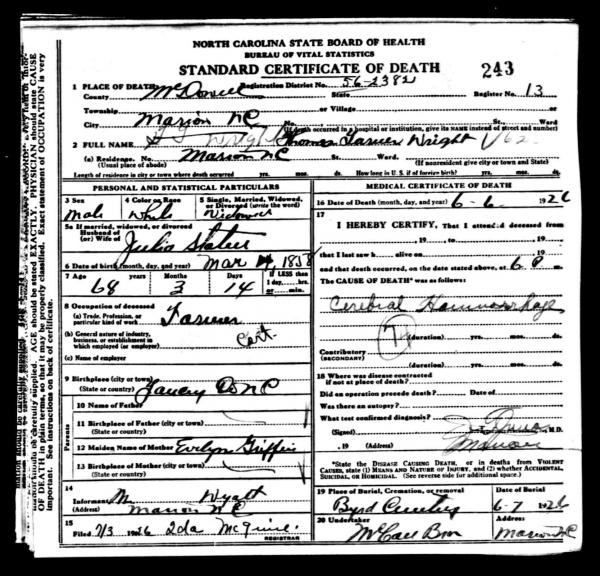 NORTH CAROLINA STATE BOARD OF HEALTH
BUREAU OF VITAL STATISTICS
STANDARD CERTIFICATE OF DEATH
243
1 PLACE OF DEATH Registration District No. 56-2382
County McDowell State Register No. 13
Township or Village
City Marion NC No. St. Ward
(If death occurred in a hospital or institution, give its NAME instead of street and number)
2 FULL NAME Thomas Wright
(a) Residence. No. Marion NC St. Ward.
(Usual place of abode) (If nonresident give city or town and State)
Length of residence in city or town where death occurred yrs. mos. ds. How long in U. S. if of foreign birth? yrs. mos. ds.
PERSONAL AND STATISTICAL PARTICULARS
3 Sex 4 Color or Race 5 Single, Married, Widowed, or Divorced (write the word)
Male White Widowed
5a If married, widowed, or divorced
Husband of
(or) Wife of Julia
6 Date of birth (month, day, and year) Mar 1858
7 Age Years Months Days If LESS than
1 day, hrs.
or min.
68 3 14
8 Occupation of deceased
(a) Trade, Profession, or
particular kind of work Farmer
(b) General nature of industry,
business, or establishment in
which employed (or employer)
(c) Name of employer
9 Birthplace (city or town) Yancey Co NC
(State or country)
Parents
10 Name of Father
11 Birthplace of Father (city or town)
(State or country)
12 Maiden Name of Mother Evelyn Griffin
13 Birthplace of Mother (city or town)
(State or country)
14
Informant M Wyatt
(Address) Marion NC
15
Filed 7/3 1926 Ida McGuire
REGISTRAR
MEDICAL CERTIFICATE OF DEATH
16 Date of Death (month, day, and year) 6-6 1926
17
I HEREBY CERTIFY, That I attended deceased from
, 19 to , 19
that I last saw h alive on , 19
and that death occurred, on the date stated above, at 6 P m.
The CAUSE OF DEATH* was as follows:
Cerebral Hemorrhage
74
(duration) yrs. mos. ds.
Contributory
(SECONDARY)
(duration) yrs. mos. ds.
18 Where was disease contracted
if not at place of death?
Did an operation precede death? Date of
Was there an autopsy?
What test confirmed diagnosis?
(Signed) M.D.
, 19 (Address) Marion
*State the DISEASE CAUSING DEATH, or in deaths from VIOLENT
CAUSES, state (1) MEANS AND NATURE OF INJURY, and (2) whether ACCIDENTAL,
SUICIDAL, OR HOMICIDAL. (See reverse side for additional space.)
19 Place of Burial, Cremation, or removal Date of Burial
Byrd Cemetery 6-7 1926
20 Undertaker Address:
McCall Bros Marion NC